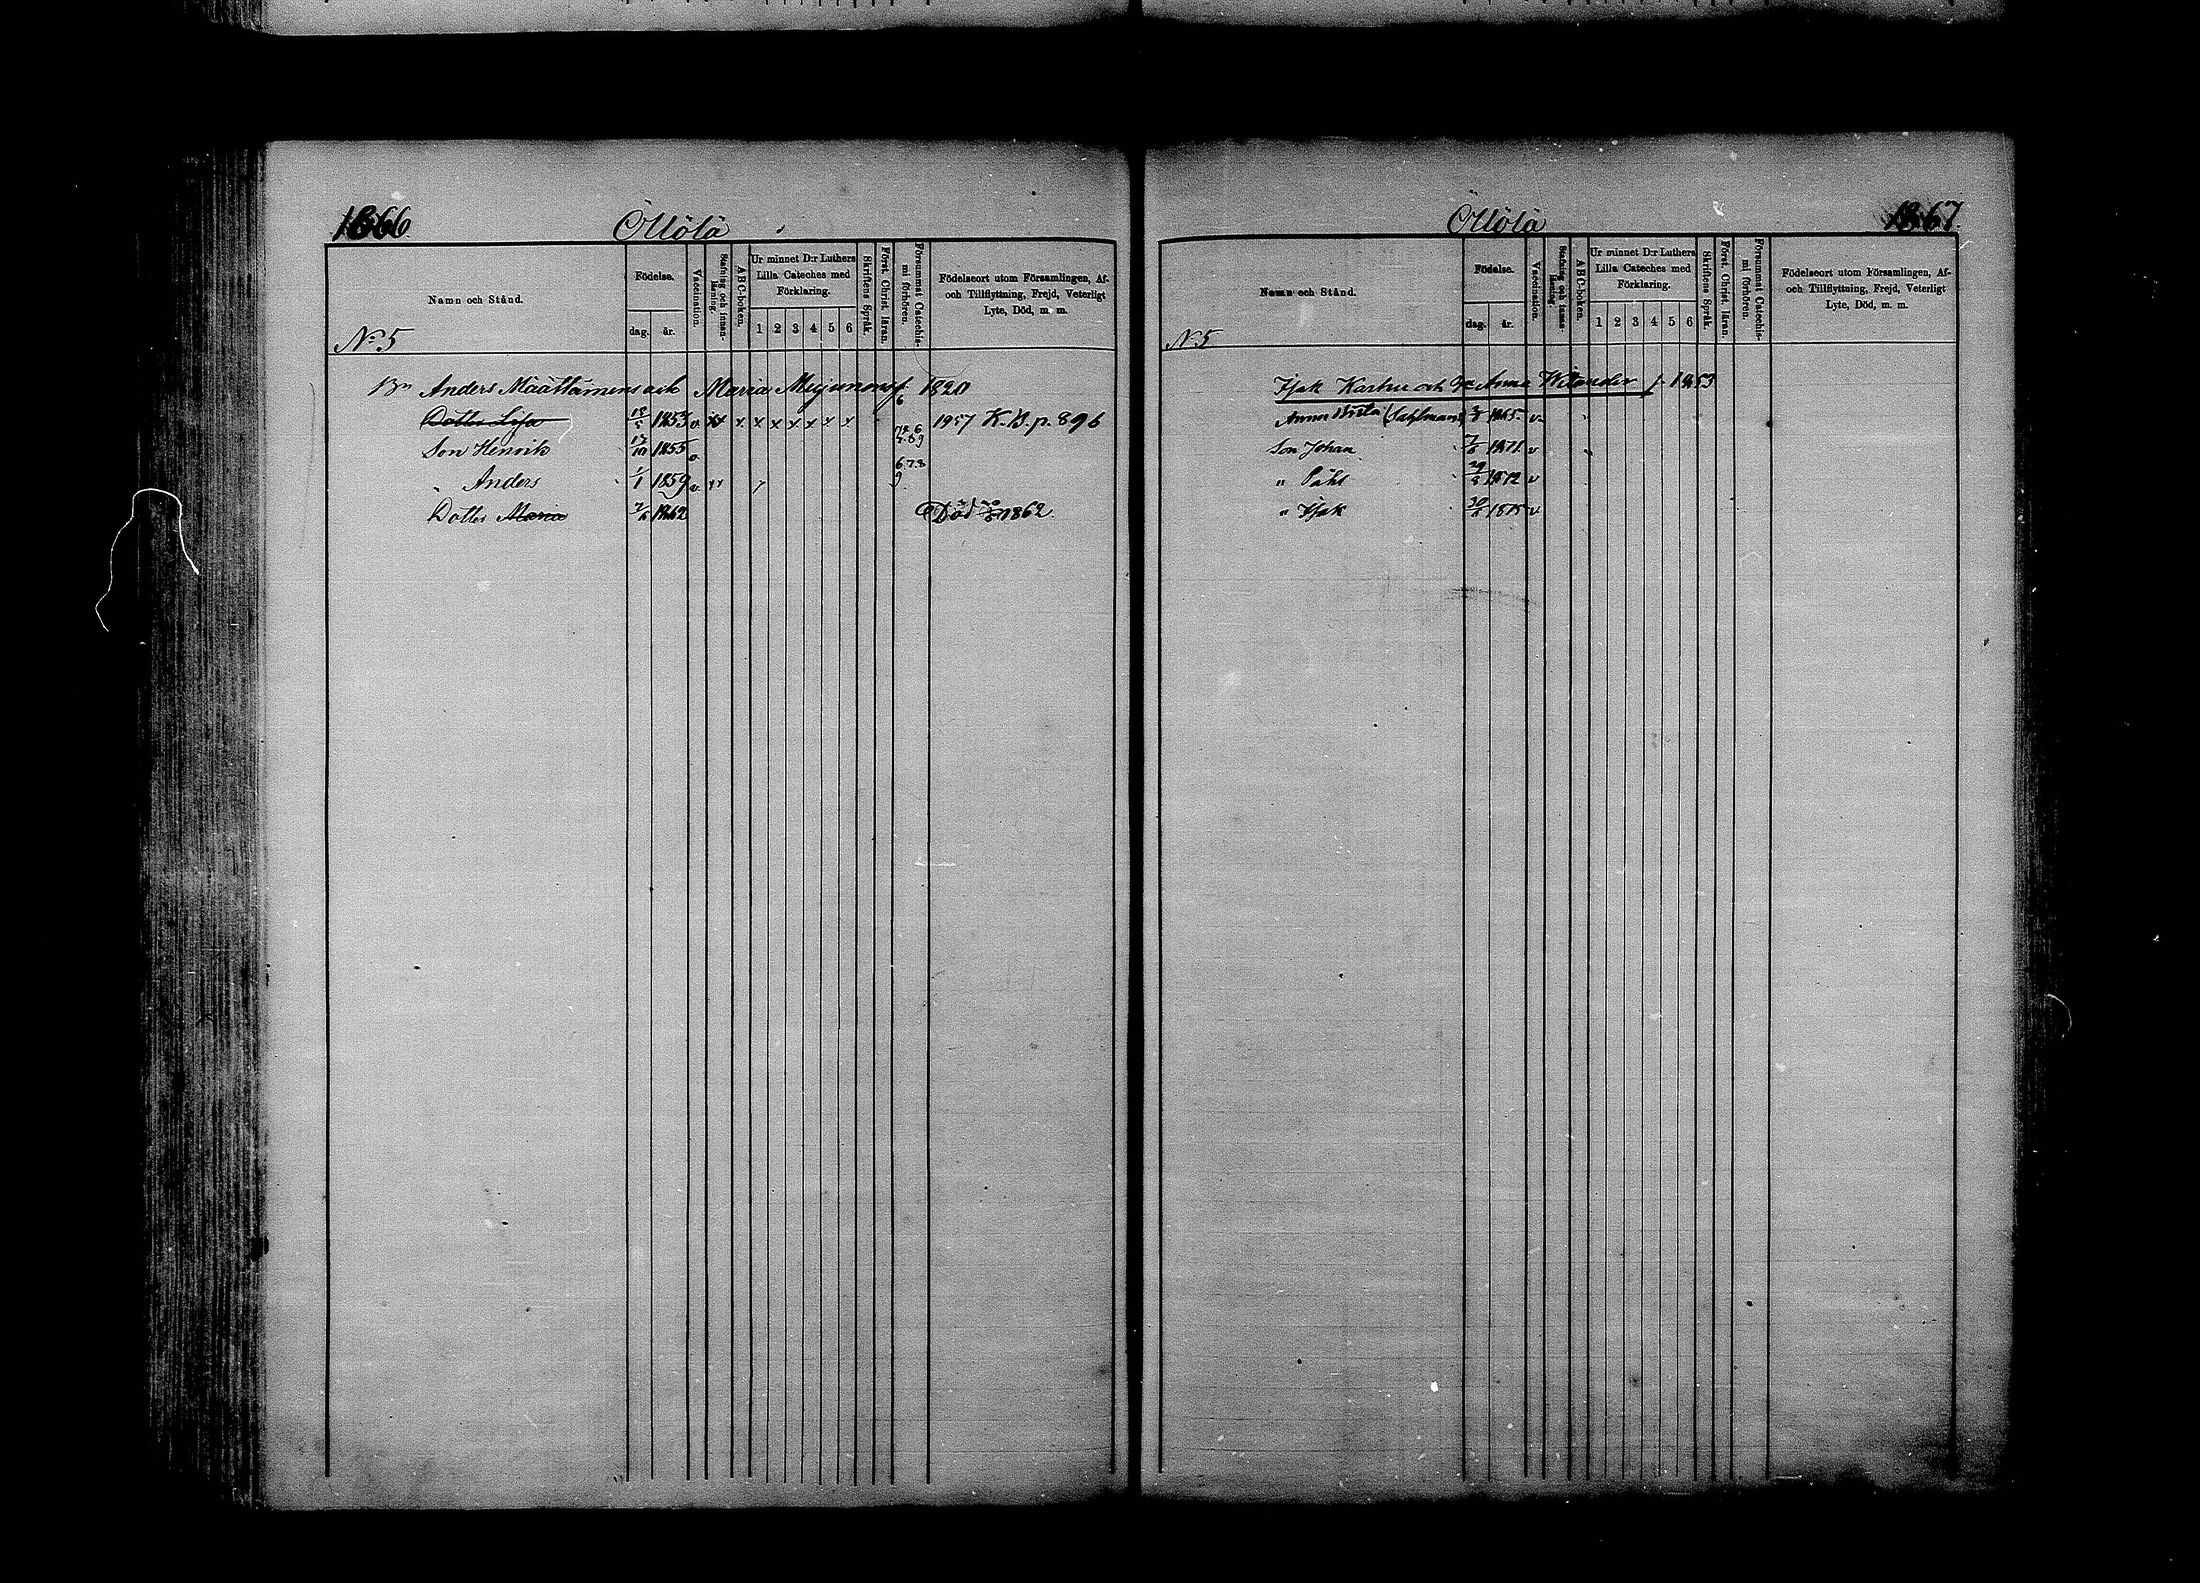 1866
Öllölä
Namn och Stånd.
Födelse.
dag. år.
Vaccination.
Stafning och innan-läsning.
ABC-boken.
Ur minnet D:r Luthers
Lilla Cateches med
Förklaring.
1 2 3 4 5 6
Skriftens Språk.
Först. Christ. läran.
Försummat Catechis-mi förhören.
Födelseort utom Församlingen, Af-
och Tillflyttning, Frejd, Veterligt
Lyte, Död, m. m.
No 5
Bn Anders Määttänens och Maria f. 1820
Dotter Lisa 18/5 1853 v. xx x x x x x x x 1957 K.B. p. 896
Son Henrik 17/10 1855 v.
" Anders 1/1 1859 v. 6 7 8 9
Dotter Maria 1862 Död 1862.
Öllölä
1867
Namn och Stånd.
Födelse.
dag. år.
Vaccination.
Stafning och innan-läsning.
ABC-boken.
Ur minnet D:r Luthers
Lilla Cateches med
Förklaring.
1 2 3 4 5 6
Skriftens Språk.
Först. Christ. läran.
Försummat Catechis-mi förhören.
Födelseort utom Församlingen, Af-
och Tillflyttning, Frejd, Veterligt
Lyte, Död, m. m.
N 5
Isak Karhu och Anna f. 1853
Anna Brita (Sahlman) 1865. v
Son Johan 1871. v
" Påhl 1872 v
" Isak 1875 v